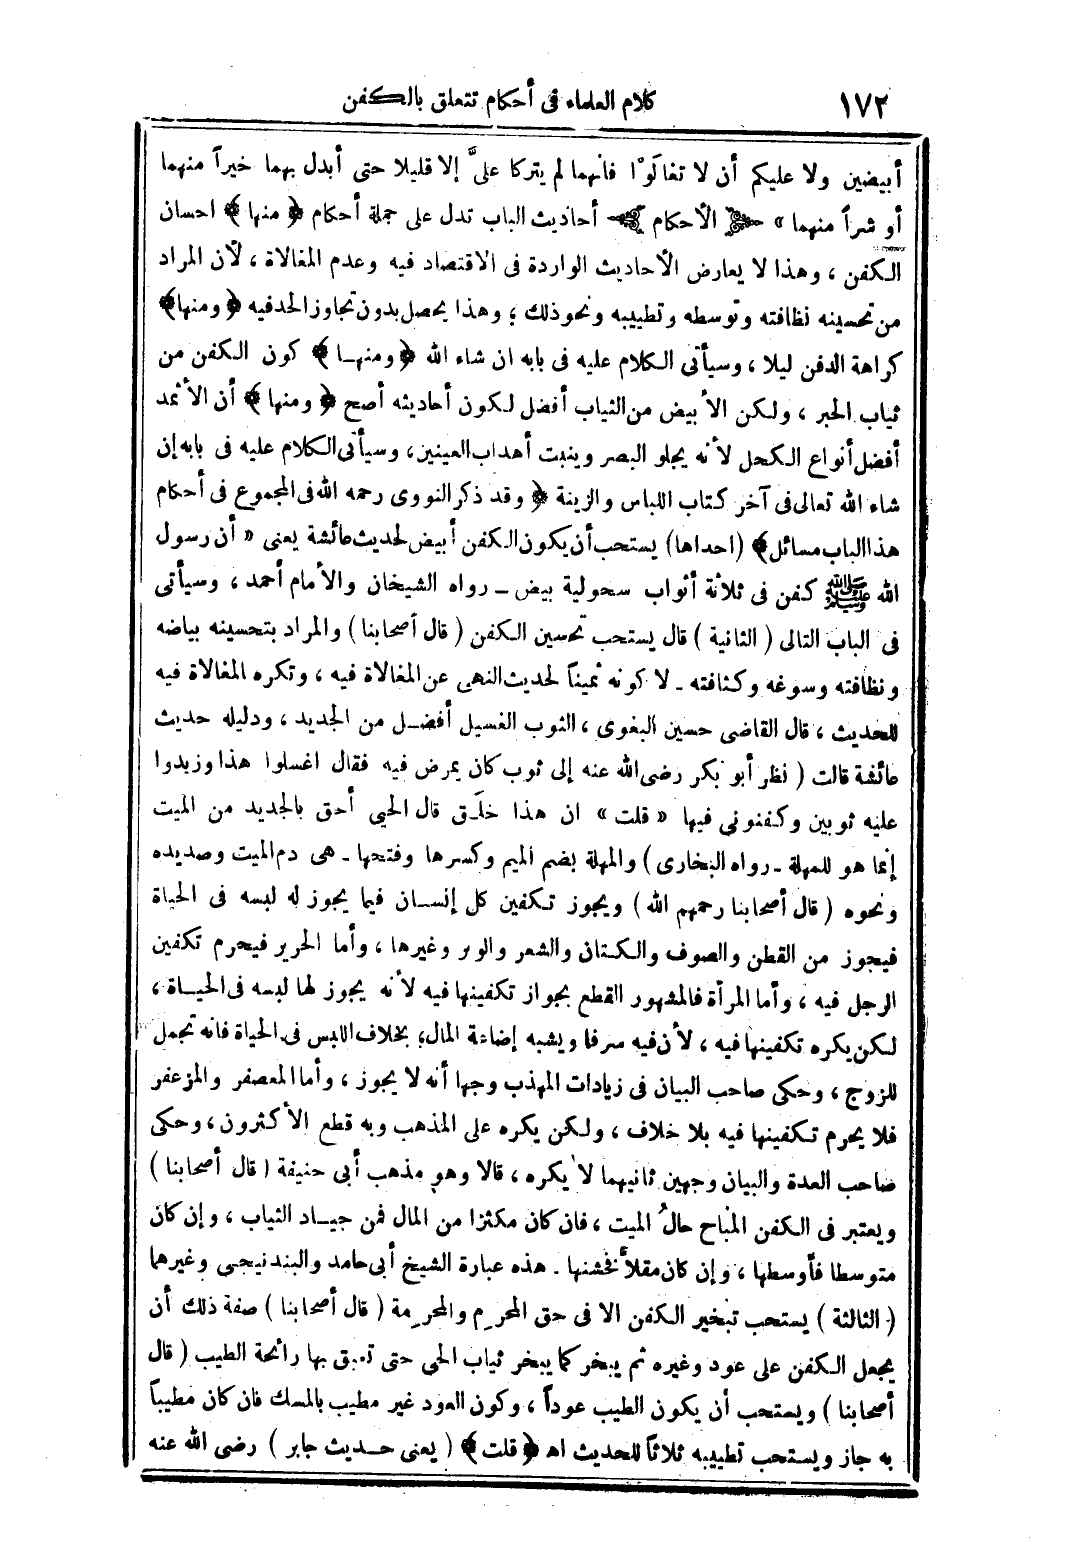 ١٧٢ كلام العلماء فى أحكام تتعلق بالكفن
أبيضين ولا عليكم أن لا تغالَوْا فانهما لم يتركا علىَّ إلا قليلا حتى أبدل بهما خيراً منهما
أو شراً منهما » ﴿ الأحكام ﴾ أحاديث الباب تدل على جملة أحكام ﴿ منها ﴾ احسان
الكفن ، وهذا لا يعارض الأحاديث الواردة فى الاقتصاد فيه وعدم المغالاة ، لأن المراد
من تحسينه نظافته وتوسطه وتطييبه ونحو ذلك ؛ وهذا يحصل بدون تجاوز الحد فيه ﴿ ومنها ﴾
كراهة الدفن ليلا ، وسيأتى الكلام عليه فى بابه ان شاء الله ﴿ ومنها ﴾ كون الكفن من
ثياب الحبر ، ولكن الأبيض من الثياب أفضل لكون أحاديثه أصح ﴿ ومنها ﴾ أن الأثمد
أفضل أنواع الكحل لأنه يجلو البصر وينبت أهداب العينين ، وسيأتى الكلام عليه فى بابه إن
شاء الله تعالى فى آخر كتاب اللباس والزينة ﴿ وقد ذكر النووى رحمه الله فى المجموع فى أحكام
هذا الباب مسائل ﴾ ( احداها ) يستحب أن يكون الكفن أبيض لحديث عائشة يعنى « أن رسول
الله ﷺ كفن فى ثلاثة أثواب سحولية بيض ـ رواه الشيخان والأمام أحمد ، وسيأتى
فى الباب التالى ( الثانية ) قال يستحب تحسين الكفن ( قال أصحابنا ) والمراد بتحسينه بياضه
ونظافته وسوغه وكثافته ـ لا كونه ثميناً لحديث النهى عن المغالاة فيه ، وتكره المغالاة فيه
للحديث ، قال القاضى حسين البغوى ، الثوب الغسيل أفضل من الجديد ، ودليله حديث
عائشة قالت ( نظر أبو بكر رضى الله عنه إلى ثوب كان يمرض فيه فقال اغسلوا هذا وزيدوا
عليه ثوبين وكفنونى فيها « قلت » ان هذا خلَق قال الحى أحق بالجديد من الميت
إنما هو للمهلة ـ رواه البخارى ) والمهلة بضم الميم وكسرها وفتحها ـ هى دم الميت وصديده
ونحوه ( قال أصحابنا رحمهم الله ) ويجوز تكفين كل إنسان فيما يجوز له لبسه فى الحياة
فيجوز من القطن والصوف والكتان والشعر والوبر وغيرها ، وأما الحرير فيحرم تكفين
الرجل فيه ، وأما المرأة فالمشهور القطع بجواز تكفينها فيه لأنه يجوز لها لبسه فى الحياة ،
لكن يكره تكفينها فيه ، لأن فيه سرفا ويشبه إضاعة المال ؛ بخلاف اللبس فى الحياة فانه تجمل
للزوج ، وحكى صاحب البيان فى زيادات المهذب وجها أنه لا يجوز ، وأما المعصفر والمزعفر
فلا يحرم تكفينها فيه بلا خلاف ، ولكن يكره على المذهب وبه قطع الأكثرون ، وحكى
صاحب العدة والبيان وجهين ثانيهما لا يكره ، قالا وهو مذهب أبى حنيفة ( قال أصحابنا )
ويعتبر فى الكفن المباح حالُ الميت ، فان كان مكثرا من المال فمن جياد الثياب ، وإن كان
متوسطا فأوسطها ، وإن كان مقلاً فخشنها . هذه عبارة الشيخ أبى حامد والبندنيجى وغيرهما
( الثالثة ) يستحب تبخير الكفن الا فى حق المحرِم والمحرِمة ( قال أصحابنا ) صفة ذلك أن
يجعل الكفن على عود وغيره ثم يبخر كما يبخر ثياب الحى حتى تعبق بها رائحة الطيب ( قال
أصحابنا ) ويستحب أن يكون الطيب عوداً ، وكون العود غير مطيب بالمسك فان كان مطيباً
به جاز ويستحب تطييبه ثلاثاً للحديث اهـ ﴿ قلت ﴾ ( يعنى حديث جابر ) رضى الله عنه